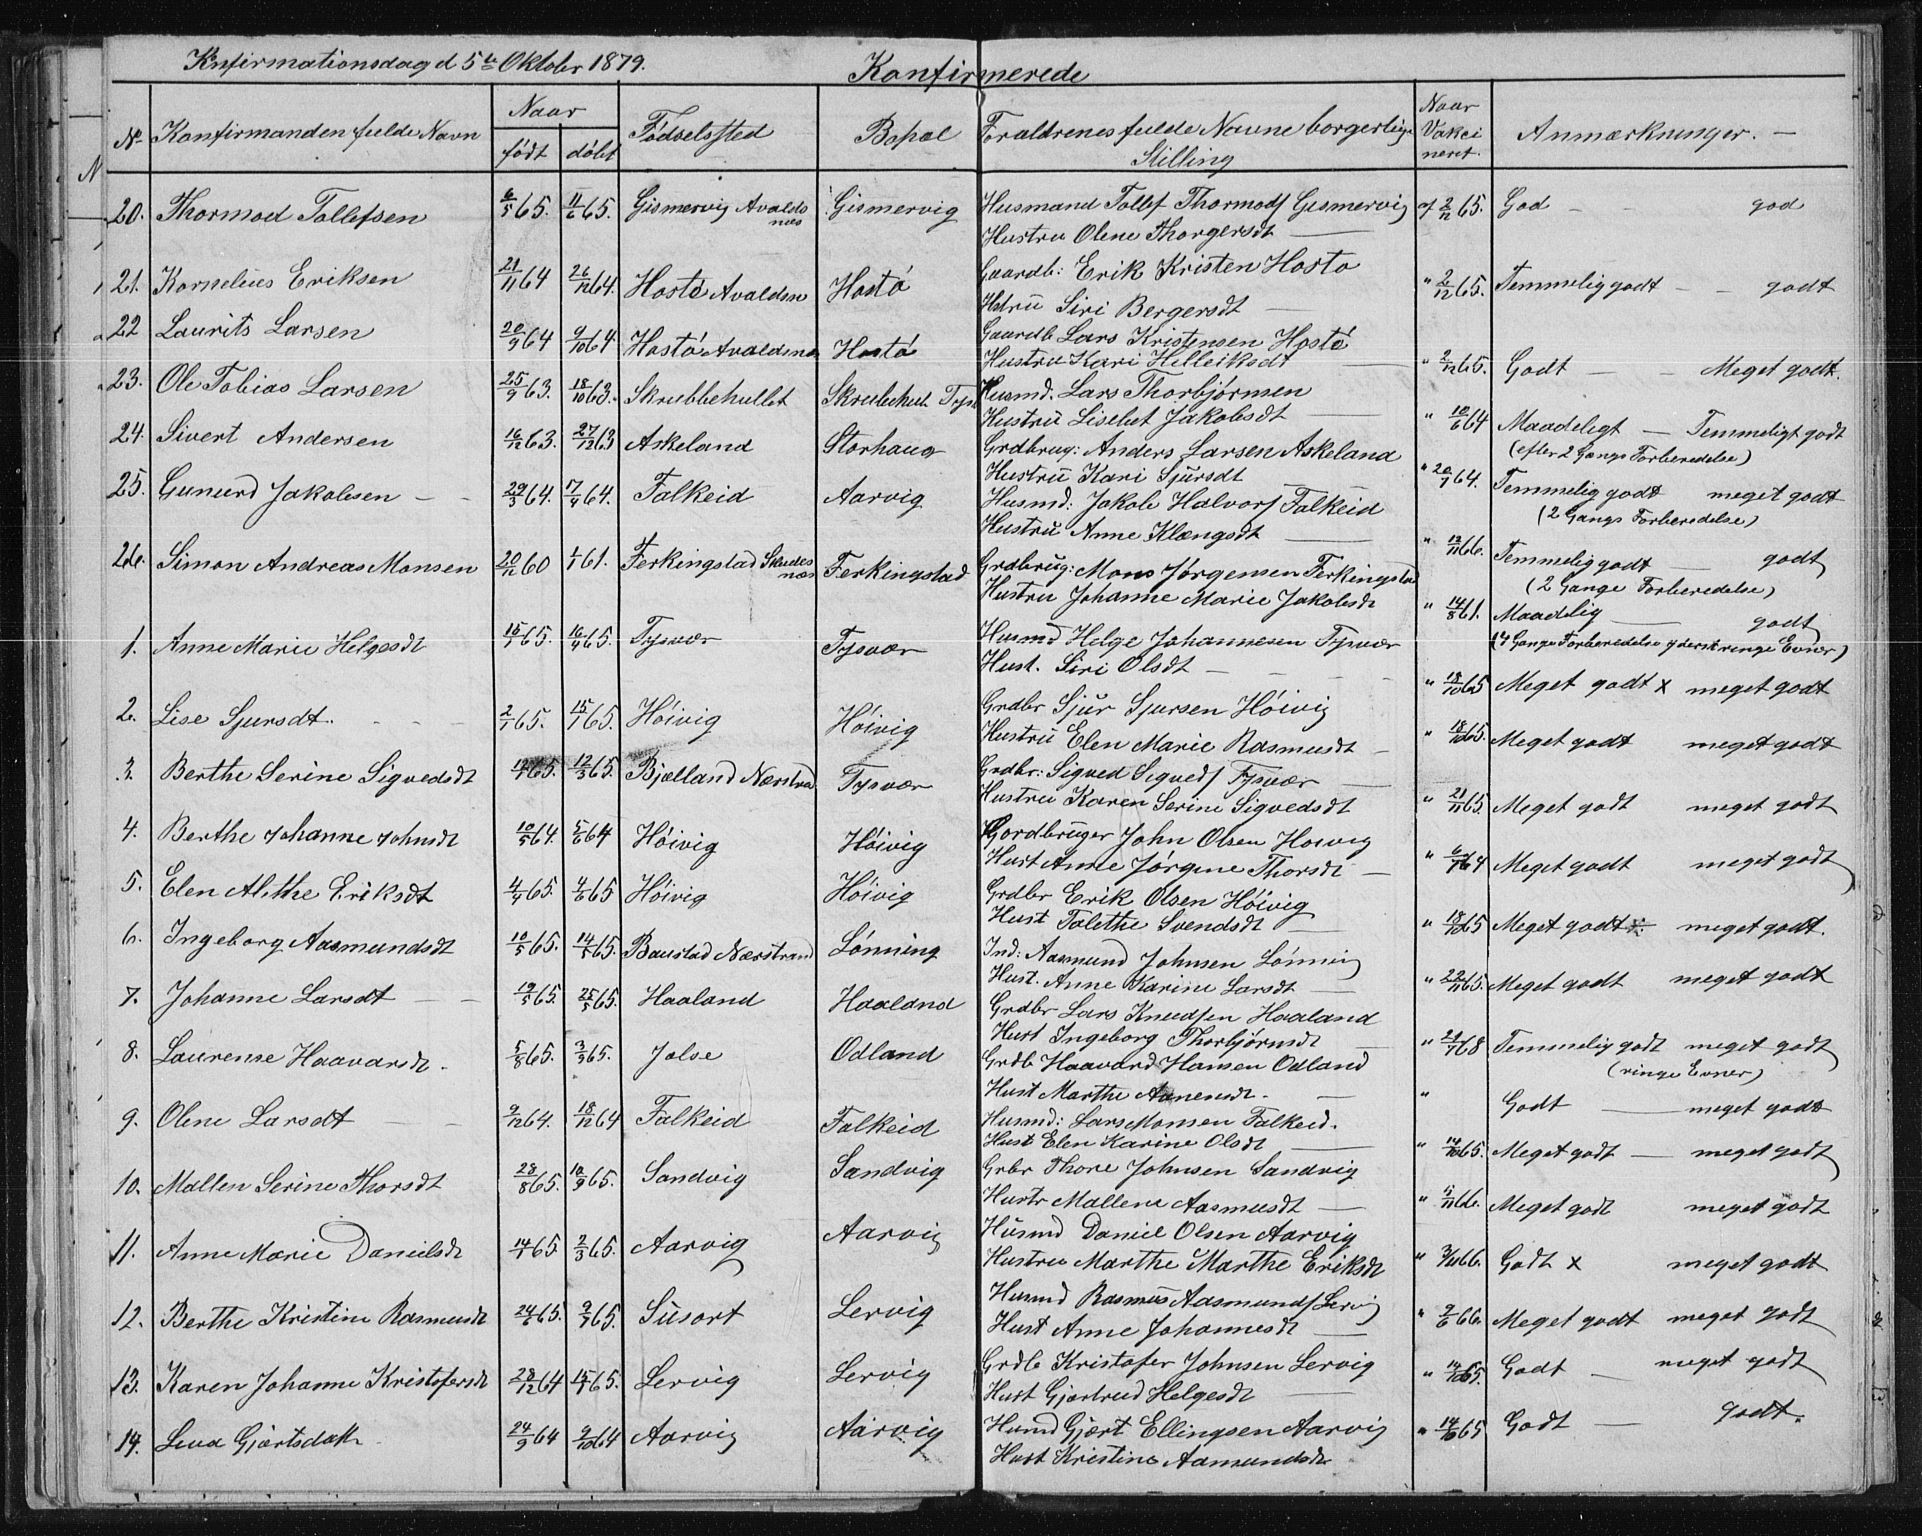 Knfirmationsdag d 5te Oktober 1879.
Konfirmerede
No Konfirmanden fulde Navn Naar født døbt Fødselssted Bopæl Foraldrenes fulde Navne borgerlige Stilling Naar Vakcineret. Anmærkninger. —
20. Thormod Tollefsen 6/5 65. 11/6 65. Gismervig Avaldsnæs Gismervig Husmand Tollef Thormods Gismervig af 2/12 65. God — god
Hustru Olene Thorgersdt —
21. Kornelius Eriksen 21/11 64 26/12 64. Hostø Avaldsn Hostø Gaardb: Erik Kristen Hosto " 2/12 65. Temmelig godt — — godt
Hstru Siri Bergersdt —
22 Laurits Larsen 20/9 64 9/10 64. Hostø Avaldsnæs Hostø Gaardb Lars Kristensen Hostø
Hustru Kari Helleiksdt — " 2/12 65. Godt — — Meget godt.
23. Ole Tobias Larsen 25/9 63. 18/10 63. Skrubbehullet Skrubehul. Tysv Husmd. Lars Thorbjørnsen
Hustru Lisebet Jakobsdt — " 10/6 64 Maadeligt — Temmeligt godt
(efter 2 Gangs Forberedelse)
24. Sivert Andersen 16/12 63. 27/12 63 Askeland Storhaug Grdbrug: Anders Larsen Askeland
Hustru Kari Sjursdt " 20/1 64. Temmelig godt meget godt
(2 Gangs Forberedelse)
25. Gunerd Jakobsen — — 29/3 64. 17/4 64. Falkeid Aarvig Husmd: Jakob Halvors Falkeid
Hustru Anne Klængsdt — " 12/11 66. Temmelig godt — godt
(2 Gange Forberedelse)
26. Simon Andreas Monsen 20/12 60 1/1 61. Ferkingstad Skudesnæs Ferkingstad Grdbrug: Mons Jørgensen Ferkingstad
Hustru Johanne Marie Jakobsdt " 14/8 61. Maadelig — godt
(4 Gange Forberedelse yderst ringe Evner)
1. Anne Marie Helgesdt 15/1 65. 16/4 65. Tysvær Tysvær Husmd Helge Johannesen Tysvær
Hust. Siri Olsdt — " 18/10 65 Meget godt x meget godt
2. Lise Sjursdt. 2/1 65. 15/1 65. Høivig Høivig Grdbr Sjur Sjursen Høivig
Hustru Elen Marie Rasmusdt — " 18/10 65. Meget godt meget godt
3. Berthe Serine Sigvedsdt 65. 12/3 65. Bjælland Nærstrand Tysvær Grdbr: Sigved Sigveds Tysvær
Hustru Karen Serine Sigvedsdt " 21/11 65 Meget godt meget godt
4. Berthe Johanne Johnsdt 10/5 64. 5/6 64 Høivig Høivig Gordbruger John Olsen Hoivig
Hust Anne Jørgine Thorsdt — " 6/7 64 Meget godt meget godt
5. Elen Alithe Eriksdt 4/4 65 4/6 65 Høivig Høivig Grdbr Erik Olsen Høivig
Hust Talethe Svendsdt — " 18/10 65 Meget godt meget godt.
6. Ingeborg Aasmundsdt 10/5 65. 14/5 65. Baustad Nærstrand Lønning Ind: Aasmund Johnsen Lønnin
Hust. Anne Karine Larsdt — " 22/11 65. Meget godt meget godt
7. Johanne Larsdt — — 19/5 65. 25/5 65. Haaland Haaland Grdbr Lars Knudsen Haaland
Hust Ingeborg Thorbjørnsdt " 21/7 68 Temmelig godt meget godt
(ringe Evner)
8. Laurense Haavarsdt. 5/8 65. 3/9 65. Jolse Odland Grdb Haavard Hansen Odland
Hust Marthe Aanensdt. — " Godt — meget godt
9. Olene Larsdt — — 9/12 64. 18/12 64 Falkeid Falkeid Husmd: Lars Monsen Falkeid.
Hust Elen Karine Olsdt — " 14/10 65. Meget godt — meget godt
10. Mallen Serine Thorsdt 28/8 65. 10/9 65. Sandvig Sandvig Grbr Thore Johnsen Sandvig
Hustr Mallene Aasmusdt — " 5/11 66. Meget godt meget godt
11. Anne Marie Danielsdt 14/1 65. 2/3 65. Aarvig Aarvig Husmd Daniel Olsen Aarvig
Hustru Marthe Marthe Eriksdt " 3/11 66. Godt x meget godt
12. Berthe Kristine Rasmusdt 24/6 65. 9/7 65. Susort Lervig Husmd Rasmus Aasmunds Lervig
Hust Anne Johannesdt — " 9/6 66. Meget godt meget godt
13. Karen Johanne Kristofersdt 28/12 64 15/1 65. Lervig Lervig Grdb Kristofer Johnsen Lervig
Hust Gjærtrud Helgesdt — " 14/10 65. Godt — meget godt
14. Lena Gjærtsdatt. 24/9 64 9/10 64 Aarvig Aarvig Husmd Gjært Ellingsen Aarvig " 14/10 65 Godt — godt.
Hust Kristine Aamundsdt